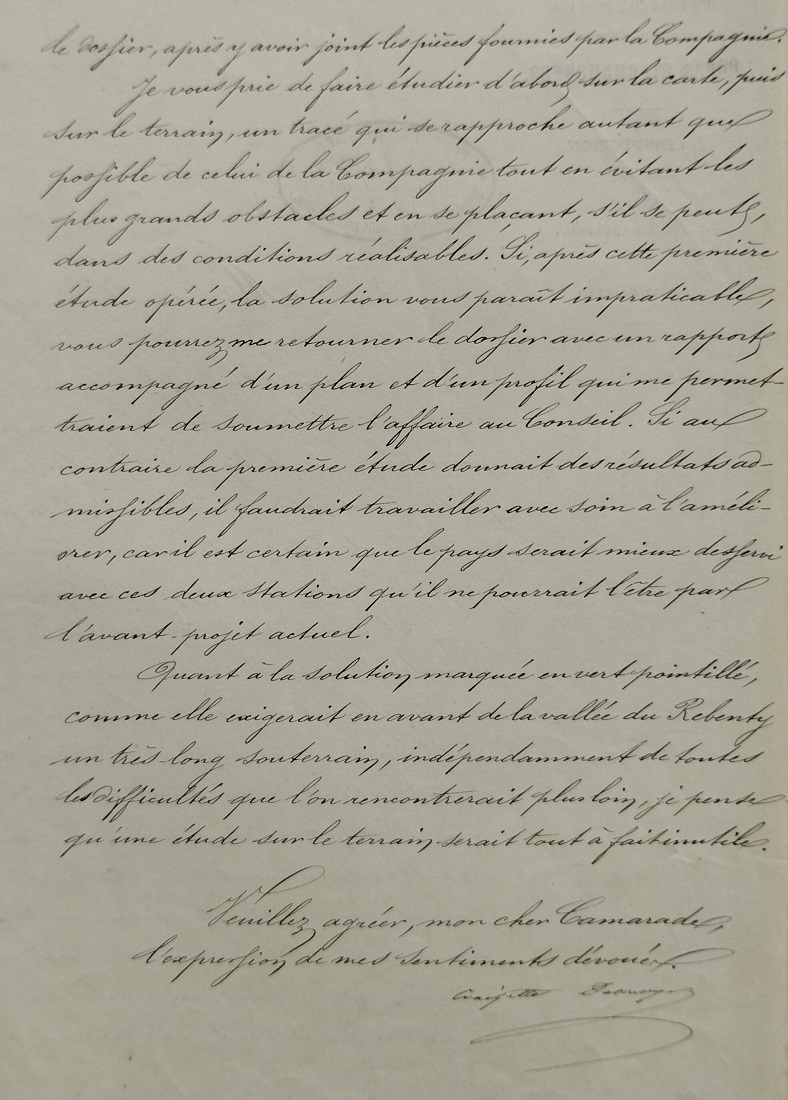 le dossier, après y avoir joint les pièces fournies par la Compagnie.
Je vous prie de faire étudier d'abord sur la carte, puis
sur le terrain, un tracé qui se rapproche autant que
possible de celui de la Compagnie tout en évitant les
plus grands obstacles et en se plaçant, s'il se peut,
dans des conditions réalisables. Si, après cette première
étude opérée, la solution vous paraît impraticable,
vous pourrez me retourner le dossier avec un rapport
accompagné d'un plan et d'un profil qui me permet-
traient de soumettre l'affaire au Conseil. Si au
contraire la première étude donnait des résultats ad-
missibles, il faudrait travailler avec soin à l'améli-
orer, car il est certain que le pays serait mieux desservi
avec ces deux stations qu'il ne pourrait l'être par
l'avant-projet actuel.
Quant à la solution marquée en vert pointillé,
comme elle exigerait en avant de la vallée du Rebenty
un très-long souterrain, indépendamment de toutes
les difficultés que l'on rencontrerait plus loin, je pense
qu'une étude sur le terrain serait tout à fait inutile.
Veuillez agréer, mon cher Camarade,
l'expression de mes sentiments dévoués.